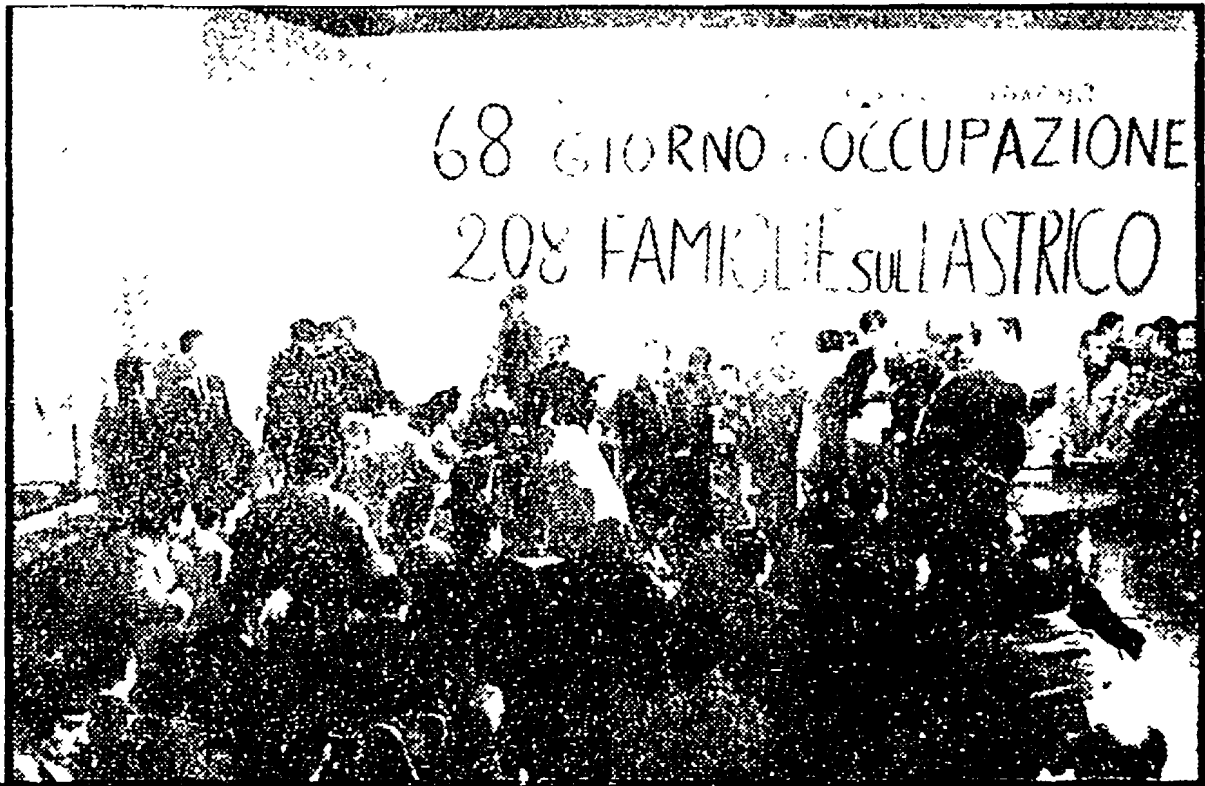 68 GIORNO OCCUPAZIONE
208 FAMIGLIE SUL LASTRICO